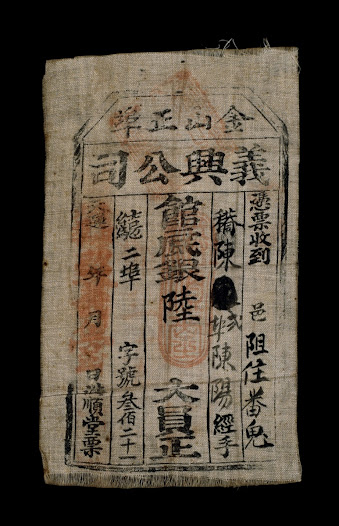 金山正埠
義興公司
憑票收到
邑阻住番鬼
陳 城陳陽經手
館底銀陸大員正
二埠 字號叄佰二十一
年 月 日 順堂票